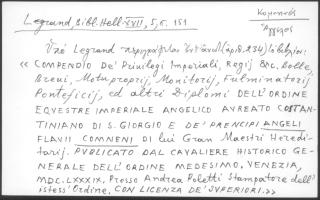 Κομνηνός
Ἄγγελος
Legrand, Bibl. Hell. XVII, 5, σ. 151
Ὑπὸ Legrand περιγράφεται
« COMPENDIO De' Privilegi Imperiali, Regij &c. Bolle,
Brevi, Motuproprij, Monitorij, Fulminatorij
Ponteficij, ed altri Diplomi DELL'ORDINE
EQVESTRE IMPERIALE ANGELICO AVREATO COSTAN-
TINIANO DI S. GIORGIO E DE' PRENCIPI ANGELI
FLAVII COMNENI DI lui Gran Maestri Heredi-
tarij. PUBLICATO DAL CAVALIERE HISTORICO GE-
NERALE DELL'ORDINE MEDESIMO. VENEZIA,
MDC.LXXXIX, Presso Andrea Poletti Stampatore dell'
istess'Ordine. CON LICENZA DE' SUPERIORI. »